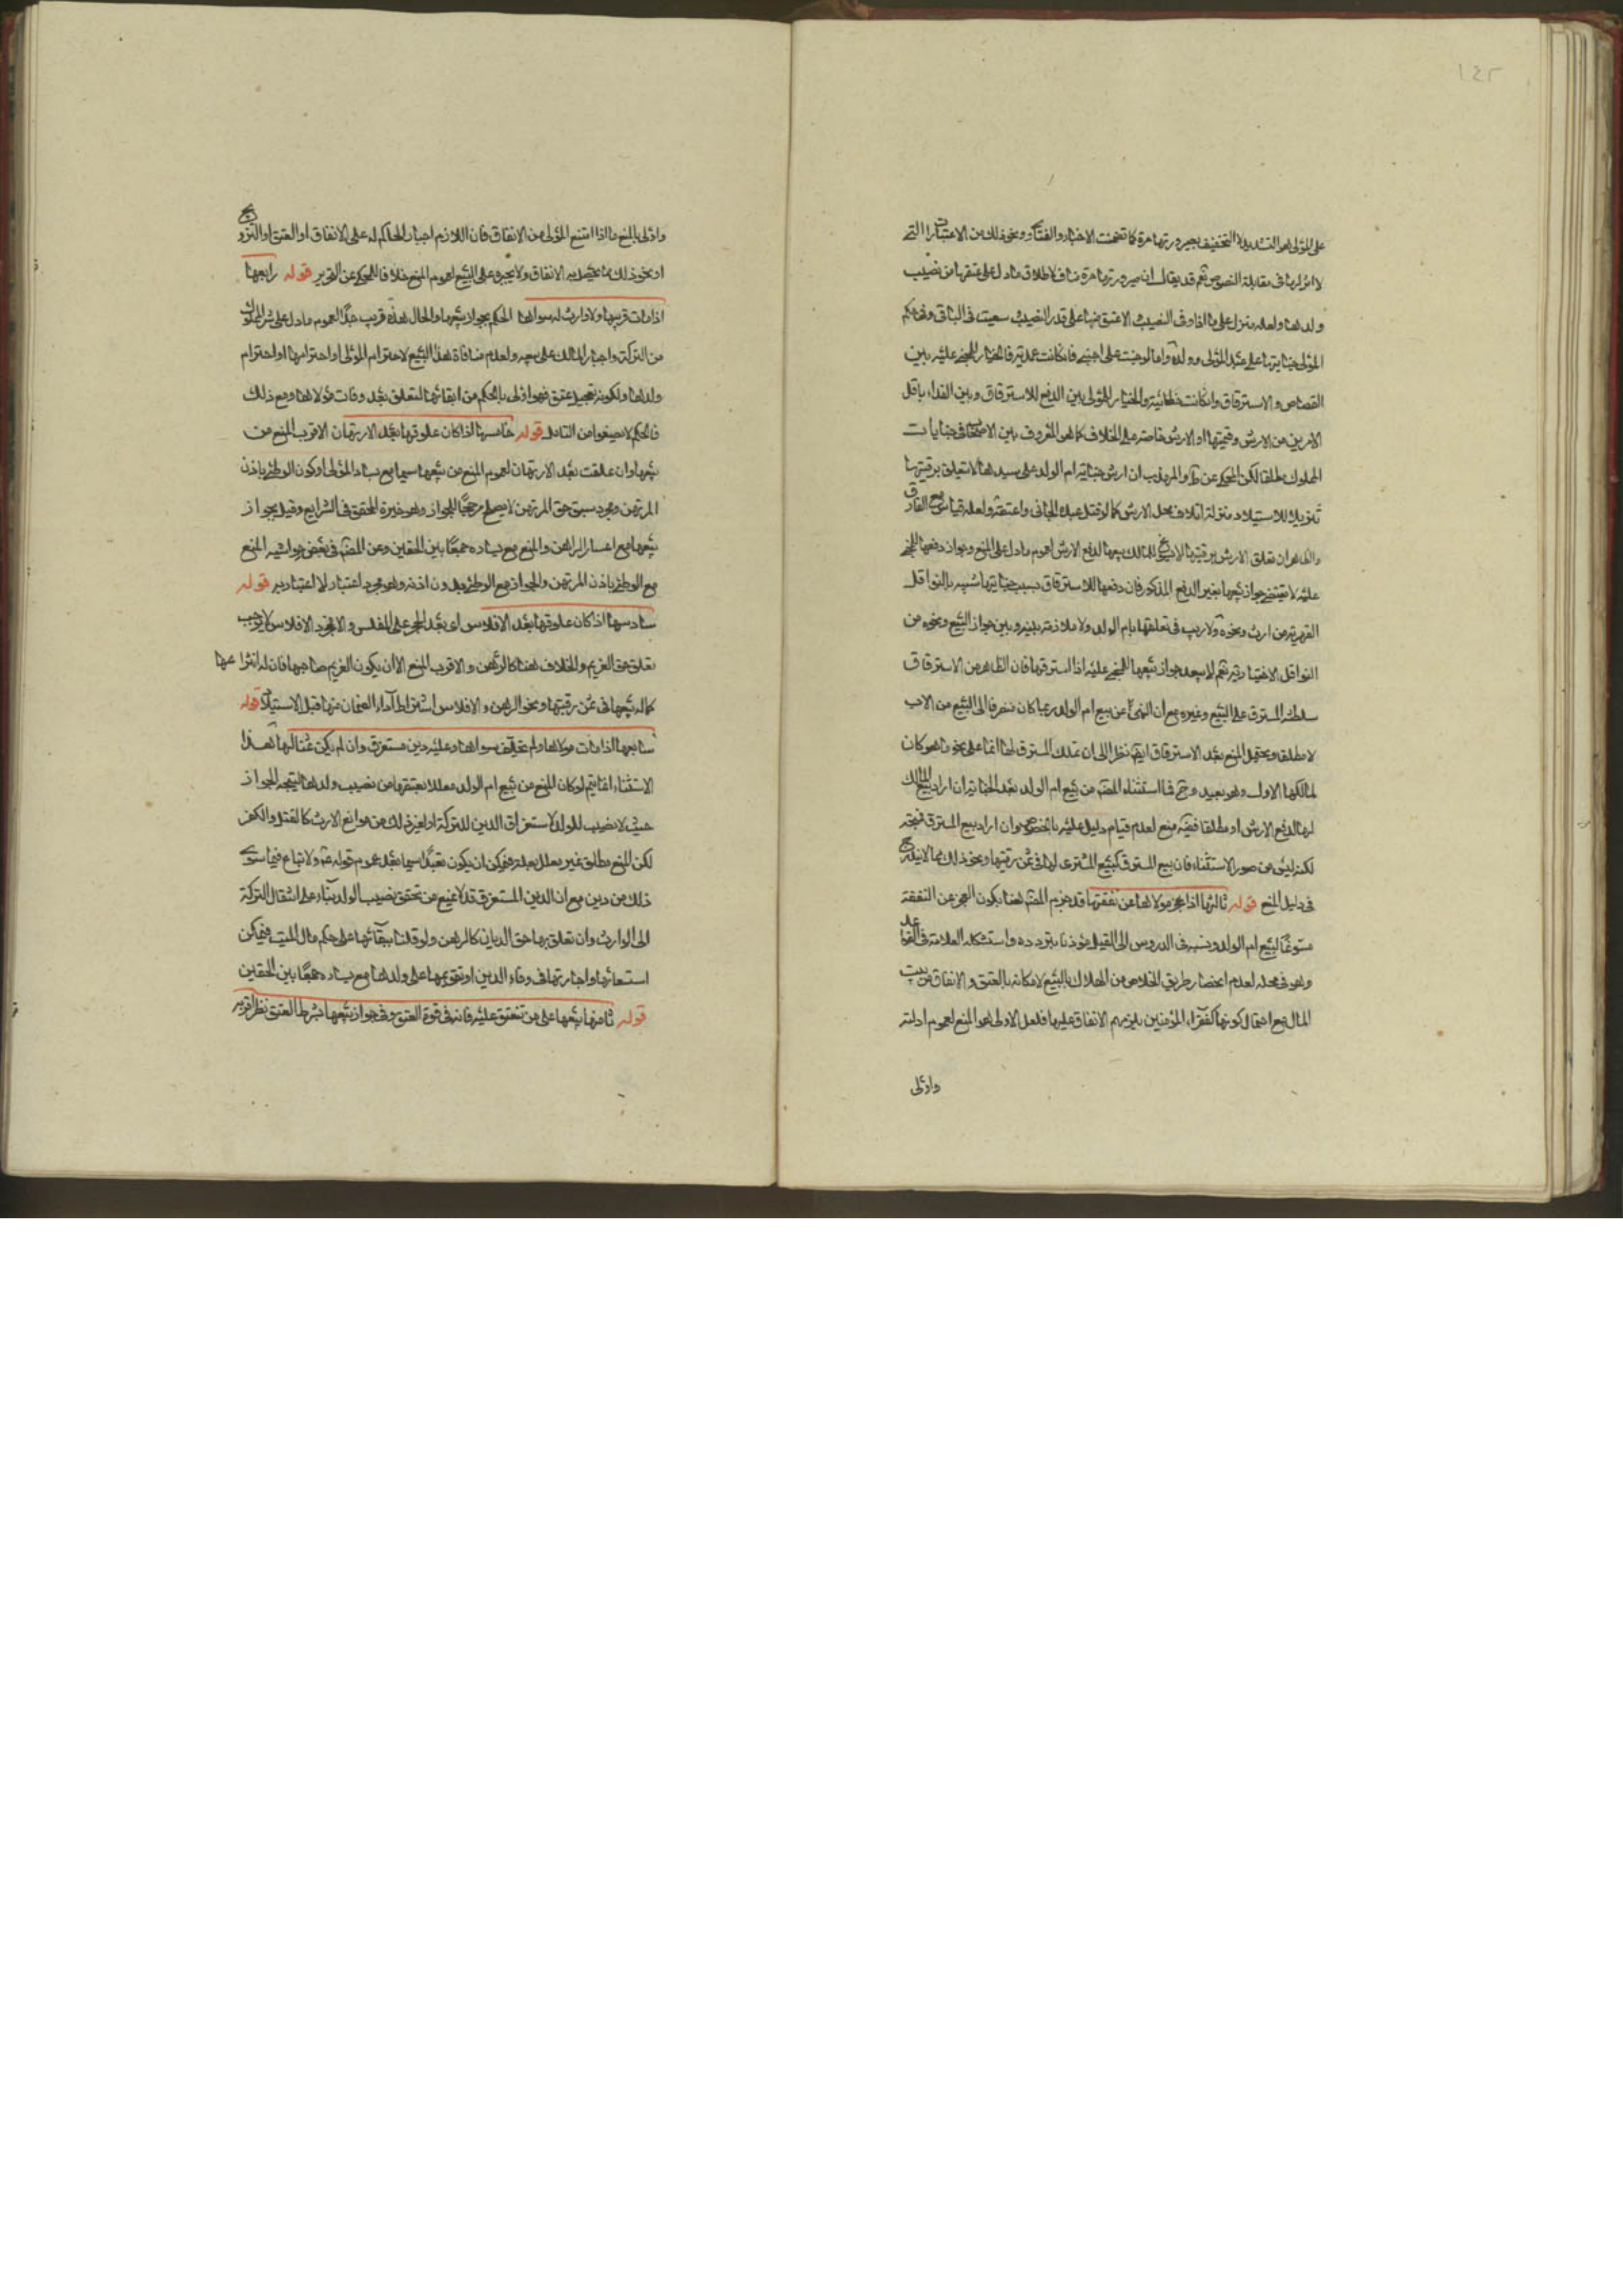 ١٤٢
على المولى هو التشديد لا التخفيف بصيرورتها حرة كما تضمنت الاخبار والفتاوى ونحو ذلك من الاعتبارات التي
لا اثر لها في مقابلة النصوص نعم قد يقال ان صيرورتها حرة مناف لاطلاق ما دل على عتقها من نصيب
ولدها ولعله ينزل على ما اذا وفى النصيب والا عتق منها على قدر النصيب سعيت في الباقي وفي حكم
المولى جنايتها على عبد المولى وولده واما لو جنت على اجنبي فان كانت عمدية فالخيار للمجني عليه بين
القصاص والاسترقاق وان كانت خطائية والخيار للمولى بين الدفع للاسترقاق وبين الفداء باقل
الامرين من الارش وقيمتها او الارش خاصة على الخلاف كما هو المعروف بين الاصحاب في جنايات
المملوك مطلقا لكن المحكي عن والمهذب ان ارش جناية ام الولد على سيدها لا يتعلق برقبتها
تنزيلا للاستيلاد منزلة اتلاف محل الارش كما لو قتل عبده الجاني واعتقه ولعله قياس مع الفارق
والظاهر ان تعلق الارش برقبتها لا يبيح للمالك بيعها لدفع الارش لعموم ما دل على المنع وجواز دفعها للمجني
عليه لا يقتضي جواز بيعها بغير الدفع المذكور فان دفعها للاسترقاق بسبب جنايتها شبيه بالنواقل
القهرية من ارث ونحوه ولا ريب في تعلقها بام الولد ولا ملازمة بينه وبين جواز البيع ونحوه من
النواقل الاختيارية نعم لا يبعد جواز بيعها للمجني عليه اذا استرقها فان الظاهر من الاسترقاق
سلطنة المسترق على البيع وغيره مع ان النهي عن بيع ام الولد ربما كان منصرفا الى البيع من الاب
لا مطلقا ويحتمل المنع بعد الاسترقاق ايضا نظرا الى ان تملك المسترق لها انما على نحو ما هو كان
لمالكها الاول وهو بعيد وح فما استثناه المص من بيع ام الولد بعد الجناية ان اراد بيع المالك
لها لدفع الارش او مطلقا ففيه منع لعدم قيام دليل عليه بالخصوص وان اراد بيع المسترق فيتجه
لكنه ليس من صور الاستثناء فان بيع المسترق كبيع المشتري لها في ثمن رقبتها ونحو ذلك مما لا يندرج
في دليل المنع قوله ثالثها اذا عجز مولاها عن نفقتها قد جزم المص هنا بكون العجز عن النفقة
مسوغا لبيع ام الولد ونسبه في الدروس الى القيل مؤذنا بتردده واستشكله العلامة في القواعد
وهو في محله لعدم انحصار طريق الخلاص من الهلاك بالبيع لامكانه بالعتق والانفاق من بيت
المال مع احتمال كونها كفقراء المؤمنين يلزمهم الانفاق عليها فلعل الاولى هو المنع لعموم ادلته
واولى
واولى بالمنع ما اذا امتنع المولى من الانفاق فان اللازم اجبار الحاكم له على الانفاق او العتق او التزويج
او نحو ذلك مما يحصل به الانفاق ولا يجبره على البيع لعموم المنع خلافا للمحكي عن التحرير قوله رابعها
اذا مات قريبها ولا وارث له سواها الحكم بجواز بيعها والحال هذه قريب جدا لعموم ما دل على شراء المملوك
من التركة واجبار المالك على بيعه ولعدم منافاة هذا البيع لاحترام المولى او احترامها او احترام
ولدها ولكونه تعجيل عتق فهو اولى بالحكم من ابقائها لتعلق بعد وفات مولاها ومع ذلك
فالحكم لا يصفو من التامل قوله خامسها اذا كان علوقها بعد الارتهان الاقرب المنع من
بيعها وان علقت بعد الارتهان لعموم المنع من بيعها سيما مع يسار المولى او كون الوطئ باذن
المرتهن ومجرد سبق حق المرتهن لا يصلح مرجحا للجواز وهو خيرة المحقق في الشرايع وقيل بجواز
بيعها مع اعسار الراهن والمنع مع يساره جمعا بين الحقين وعن المص في بعض حواشيه المنع
مع الوطئ باذن المرتهن والجواز مع الوطئ بدون اذنه وهو مجرد اعتبار لا اعتبار به قوله
سادسها اذا كان علوقها بعد الافلاس اي بعد الحجر على المفلس والا فمجرد الافلاس لا يوجب
تعلق حق الغريم والخلاف هنا كالرهن والاقرب المنع الا ان يكون الغريم صاحبها فان له انتزاعها
كما له بيعها في ثمن رقبتها ونحو الرهن والافلاس اشتراط اداء الضمان منها قبل الاستيلاد قوله
سابعها اذا مات مولاها ولم يخلف سواها وعليه دين مستغرق وان لم يكن ثمنا لها هذا
الاستثناء انما يتم لو كان المنع من بيع ام الولد معللا بعتقها من نصيب ولدها ليتجه الجواز
حيث لا نصيب للولد لاستغراق الدين للتركة او لغير ذلك من موانع الارث كالقتل والكفر
لكن المنع مطلق غير معلل بعلة فيمكن ان يكون تعبدا سيما بعد عموم قوله ع ولا تباع فيما سوى
ذلك من دين مع ان الدين المستغرق قد لا يمنع من تحقق نصيب الولد بناء على انتقال التركة
الى الوارث وان تعلق بها حق الديان كالرهن ولو قلنا ببقائها على حكم مال الميت فيمكن
استسعائها واجارتها في وفاء الدين او تقويمها على ولدها مع يساره جمعا بين الحقين
قوله ثامنها بيعها على من تنعتق عليه فانه في قوة العتق وفي جواز بيعها بشرط العتق نظر اقربه